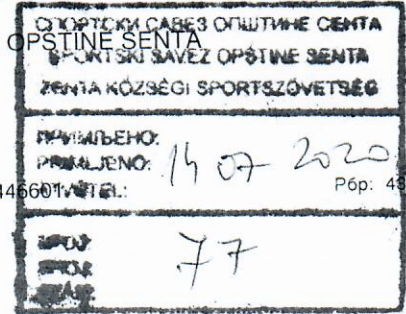 СПОРТСКИ САВЕЗ ОПШТИНЕ СЕНТА
OPŠTINE SENTA
SPORTSKI SAVEZ OPŠTINE SENTA
ZENTA KÖZSÉGI SPORTSZÖVETSÉG
ПРИМЉЕНО:
PRIMLJENO:
14 07 2020
446601
ÁTVÉTEL:
Рбр: 48
БРОЈ:
BROJ:
77